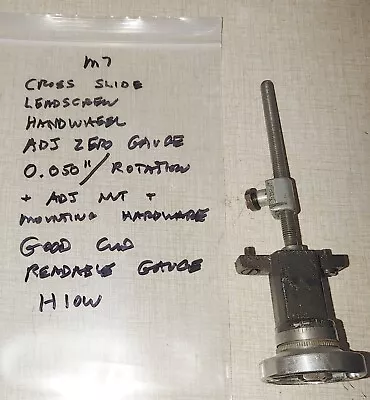 M7
CROSS SLIDE
LEADSCREW
HANDWHEEL
ADJ ZERO GAUGE
0.050"/ROTATION
+ ADJ NUT +
MOUNTING HARDWARE
GOOD CND
READABLE GAUGE
H10W